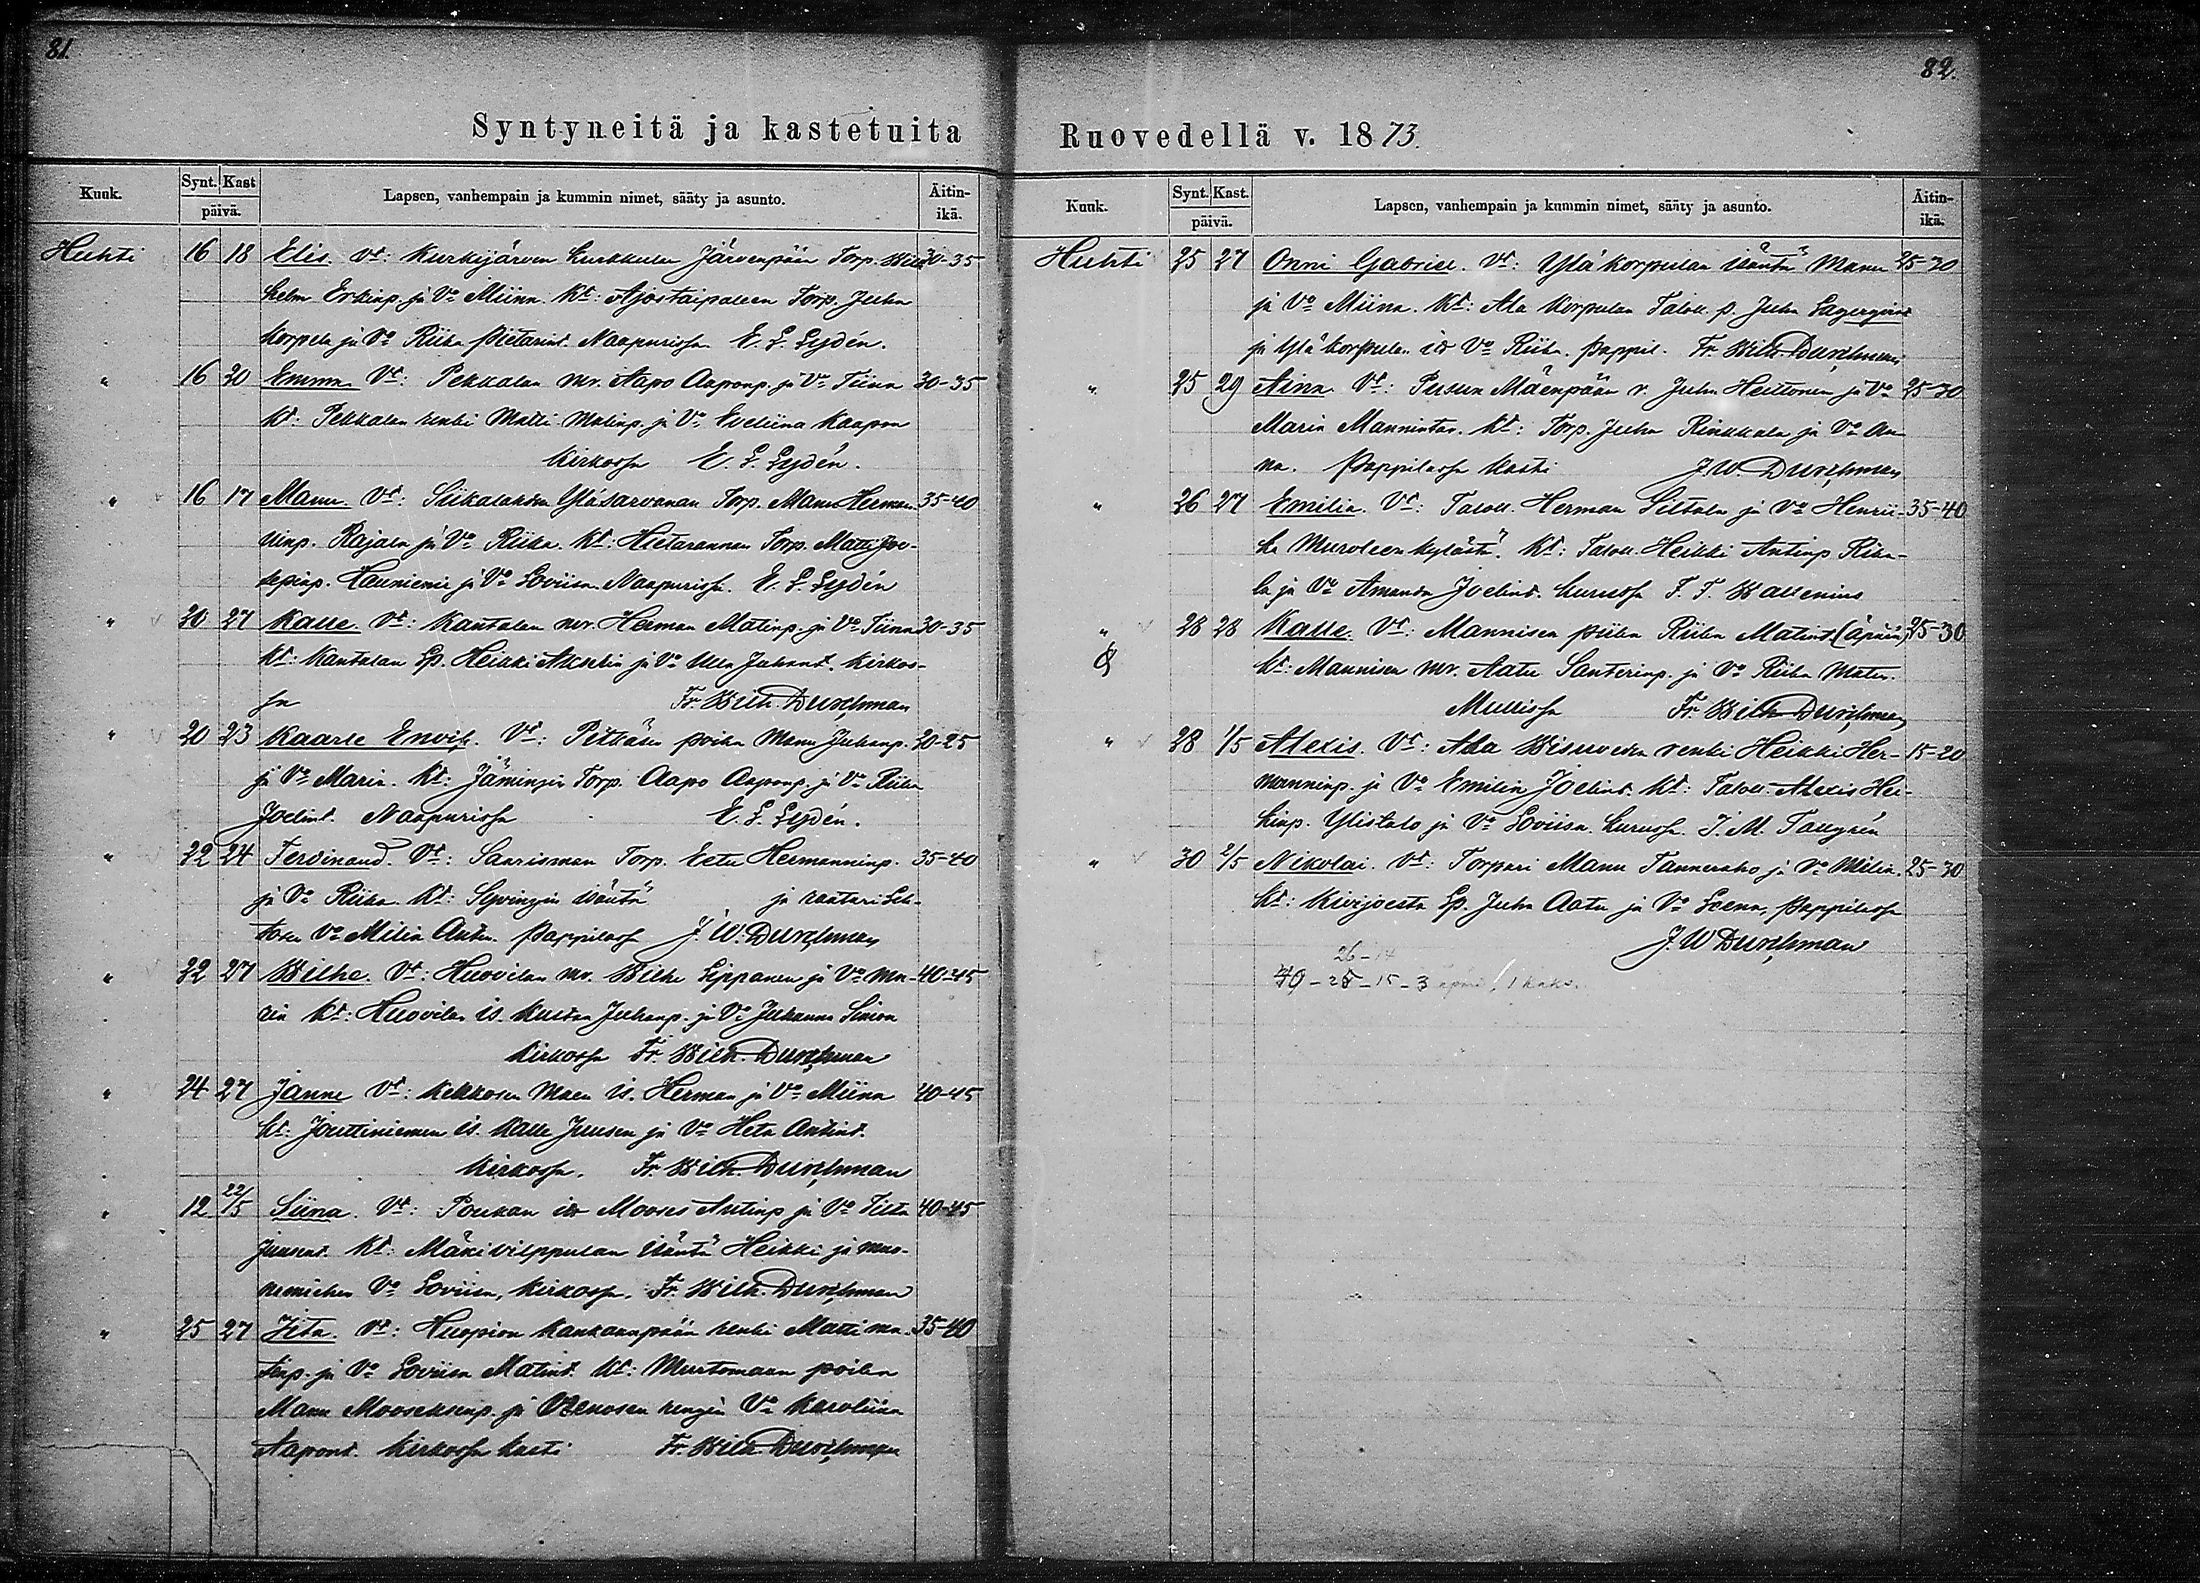 81.
Syntyneitä ja kastetuita
Kuuk. Synt. Kast päivä. Lapsen, vanhempain ja kummin nimet, sääty ja asunto. Äitin-ikä.
Huhti 16 18 Elis. Vt: Kurkijärven Kurkkulan Järvenpään Torp. Wil- 30-35
helm Erkinp. ja Vo Miina. Kt: Ajostaipaleen Torp. Juha
Korpela ja Vo Riika Pietarint. Naapurissa E. L. Lydén.
" 16 20 Emma Vt: Pekkalan mr. Aapo Aaponp. ja Vo Tiina 30-35
Kt: Pekkalan renki Matti Matinp. ja Vo Eveliina Kaapon
Kirkossa E. L. Lydén.
" 16 17 Manu. Vt: Siikalahden Yläsarvanan Torp. Manu Herman- 35-40
ninp. Rajala ja Vo Riika. Kt: Hietarannan Torp. Matti Joo-
sepinp. Hauniemi ja Vo Loviisa. Naapurissa. E. L. Lydén
" 20 27 Kalle. Vt: Kantalan mr. Herman Matinp. ja Vo Tiina 30-35
Kt: Kantalan Lp. Heikki Akselin ja Vo Ulla Juhant. Kirkos-
sa Fr. Wilh. Durchman
" 20 23 Kaarle Envik. Vt: Pitkäsen poika Manu Juhanp. 20-25
ja Vo Maria. Kt: Jämingin Torp. Aapo Aaponp. ja Vo Riika
Joelint. Naapurissa E. L. Lydén.
" 22 24 Ferdinand. Vt: Saarisman Torp. Eetu Hermanninp. 35-40
ja Vo Riika. Kt: Syvingin isäntä ja raatari Leh-
tosen Vo Milia Antin. Pappilassa J. W. Durchman
" 22 27 Wilhe. Vt: Huovilan mr. Wilhe Lippanen ja Vo Ma- 40-45
ria Kt: Huovilan is. Kustaa Juhanp. ja Vo Juhanna Simon
Kirkossa Fr. Wilh. Durchman
" 24 27 Janne Vt: Kekkosen Maen is. Herman ja Vo Miina 40-45
Kt: Jouttiniemen is. Kalle Juusen ja Vo Heta Antint.
Kirkossa. Fr. Wilh. Durchman
" 12 22/5 Siina. Vt: Poukan is Mooses Antinp ja Vo Tilta 40-45
Juusent. Kt: Mäkivilppulan isäntä Heikki ja mus-
Vo Loviisa, Kirkossa. Fr. Wilh. Durchman
" 25 27 Iita. Vt: Huopion Kankaanpään renki Matti Ma- 35-40
tinp. ja Vo Loviisa Matint. Kt: Murtomaan poika
Manu Mooseksenp. ja rengin Vo Karoliina
Aapont. Kirkossa kasti Fr. Wilh. Durchman
82.
Ruovedellä v. 1873.
Kuuk. Synt. Kast. päivä. Lapsen, vanhempain ja kummin nimet, sääty ja asunto. Äitin-ikä.
Huhti 25 27 Onni Gabriel. Vt: Ylä Korpulan isäntä Manu 25-30
ja Vo Miina. Kt: Ala Korpulan Talol. p. Juha
ja Ylä Korpulan is Vo Riika. Pappil. Fr. Wilh. Durchman
" 25 29 Aina. Vt: Mäenpään r. Juha Heittonen ja Vo 25-30
Maria Mannintar. Kt: Torp. Juha Rinkkala ja Vo An-
na. Pappilassa kasti J. W. Durchman
" 26 27 Emilia. Vt: Talol. Herman Siltala ja Vo Henrii- 35-40
ka Muroleen kylästä. Kt: Talol. Heikki Antinp. Riba-
la ja Vo Amanda Joelint. Kurussa F. F. Wallenius
" 28 28 Kalle. Vt: Mannisen piika Riika Matint (äpärä) 25-30
Kt: Mannisen mr. Aatu Santerinp. ja Vo Riika Matin.
Mullissa Fr. Wilh. Durchman
" 28 1/5 Alexis. Vt: Ala Wisuveden renki Heikki Her- 15-20
manninp. ja Vo Emilia Joelint. Kt: Talol. Alexis Hei-
kinp. Ylistalo ja Vo Loviisa. Kurussa. J. M. Tallgrén
" 30 2/5 Nikolai. Vt: Torpari Manu Tanneraho ja Vo Milia. 25-30
Kt: Kivijoesta Lp. Juha Aatu ja Vo Leena, Pappilassa
J. W Durchman
26-14
15-3 1 kaks.